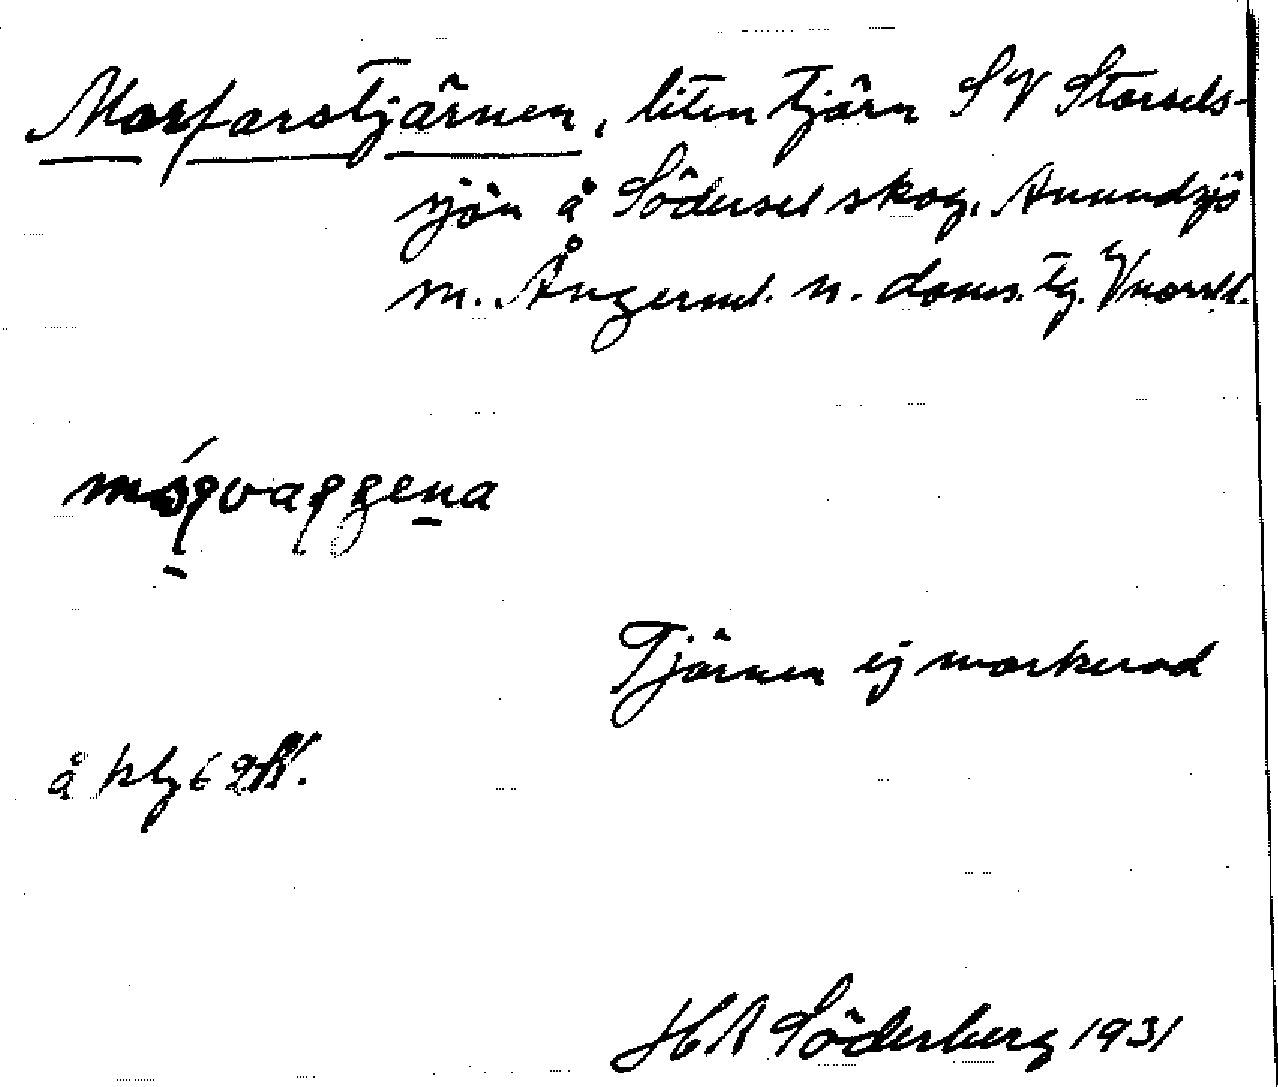 Morfarstjärnen, liten tjärn SV Storsels-
sjön å Södersel skog, Anundsjö
sn. Ångerml. n. doms. tg. Vnorrl.
Tjärnen ej markerad
å kbl 62
H A Söderberg 1931